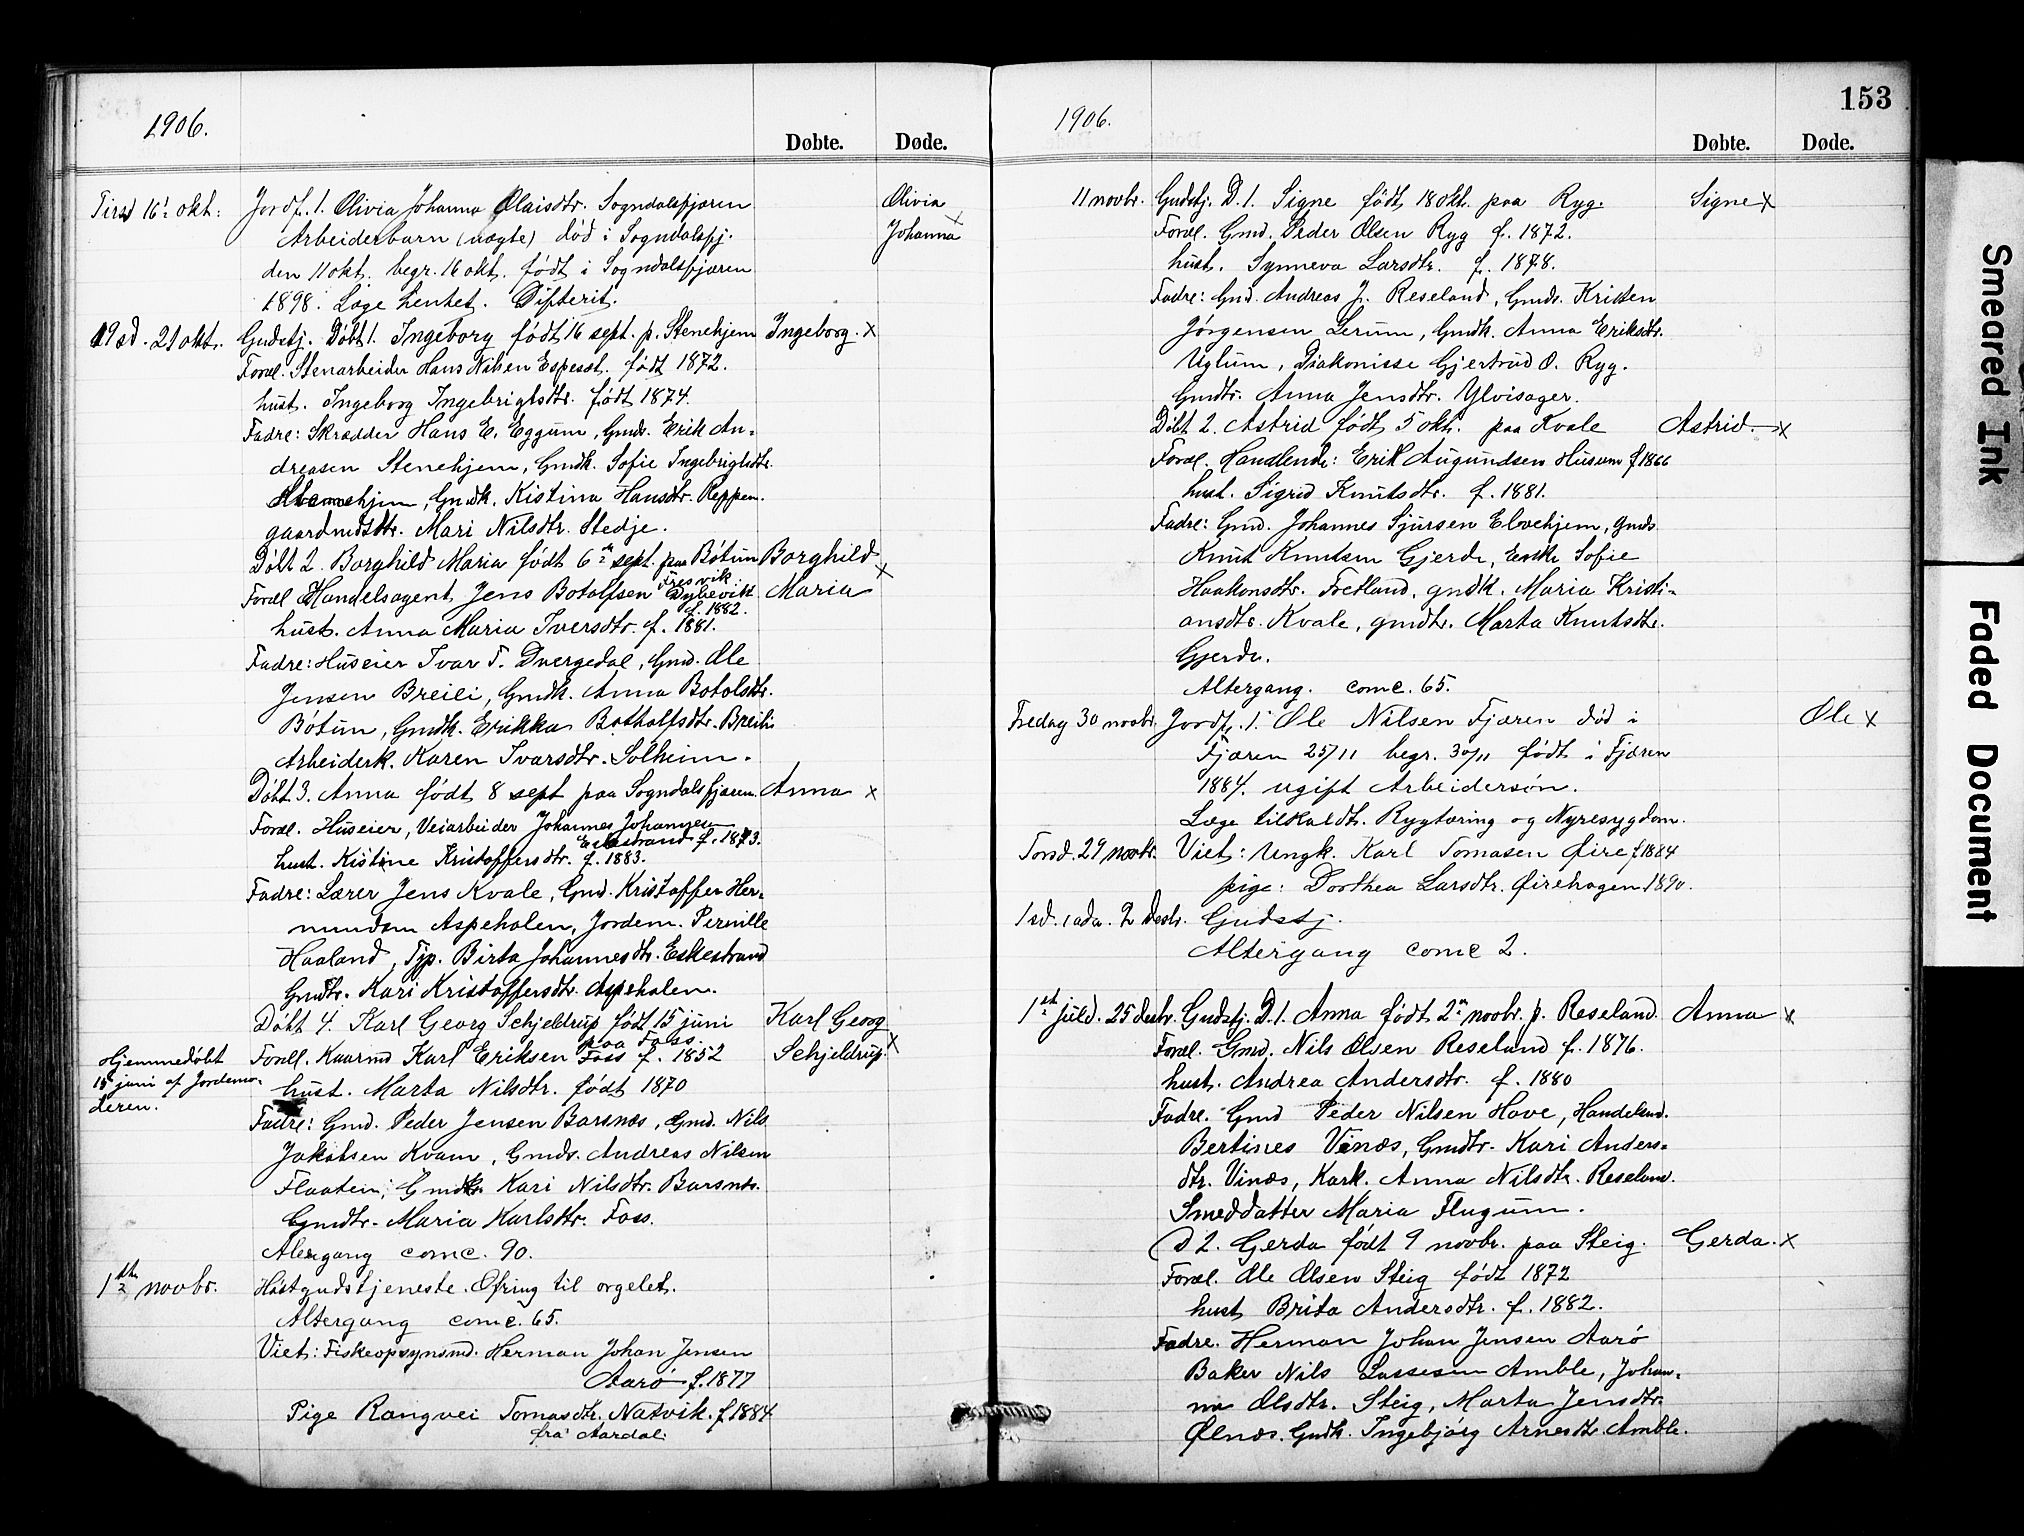 1906.
Døbte. Døde.
Tirsd 16' okt: Jordf. 1. Olivia Johanna Olaisdtr. Sogndalsfjæren Olivia
Arbeiderbarn (uægte) død i Sogndalsfj. Johanna x
den 11 okt. begr. 16 okt. født i Sogndalsfjæren
1898. Læge hentet. Difterit.
19 sd. 21 okt. Gudstj. Døbt 1. Ingeborg født 16 sept. p. Stenehjem Ingeborg. x
Foræl. Stenarbeider Hans Nilsen Espeset. født 1872.
hust. Ingeborg Ingebrigtsdtr. født 1874.
Fadre: Skrædder Hans E. Eggum, Gmds. Erik An-
dreasen Stenehjem, Gmdk. Sofie Ingebrigtsdtr.
Stenehjem, Gmdk. Kistina Hansdtr. Reppen.
gaardmdsdtr. Mari Nilsdtr. Stedje.
Døbt 2. Borghild Maria født 6te sept. paa Bøtun Borghild x
Foræl Handelsagent Jens Botolfsen Fresvik Maria
f. 1882.
hust. Anna Maria Iversdtr. f. 1881.
Fadre: Huseier Ivar T. Dvergedal, Gmd. Ole
Jensen Breili, Gmdk. Anna Botolsdtr.
Bøtun, Gmdk. Erikka Botholfsdtr. Breili
Arbeiderk. Karen Ivarsdtr. Solheim.
Døbt 3. Anna født 8 sept paa Sogndalsfjæren. Anna x
Foræl. Huseier, Veiarbeider Johannes Johannesen
Eskestrand f. 1873.
hust. Kistine Kristoffersdtr. f. 1883.
Fadre: Lærer Jens Kvale, Gmd. Kristoffer Her-
mundsen Aspehalen, Jordem. Pernille
Haaland, Tjp. Birta Johannesdtr. Eskestrand
Gmdtr. Kari Kristoffersdtr. Aspehalen.
Døbt 4. Karl Georg Schjeldrup født 15 juni Karl Georg
paa Foss.
Hjemmedøbt Foræll. Kaarmd Karl Eriksen Foss f. 1852 Schjeldrup. x
15 juni af Jordemo- hust. Marta Nilsdtr. født 1870
deren.
Fadre: Gmd. Peder Jensen Barsnæs, Gmd. Nils
Jakobsen Kvam, Gmds. Andreas Nilsen
Flaaten, Gmdk. Kari Nilsdtr. Barsnæs.
Gmdtr. Maria Karlsdtr. Foss.
Altergang comc. 90.
1ste novbr. Høstgudstjeneste. Ofring til orgelet.
Altergang comc. 65.
Viet: Fiskeopsynsmd. Herman Johan Jensen
Aarø f. 1877
Pige Rangvei Tomasdtr. Natvik. f 1884
fra Aardal.
1906. 153
Døbte. Døde.
11 novbr. Gudstj. D. 1. Signe født 18 okt. paa Ryg. Signe x
Foræl. Gmd. Peder Olsen Ryg f. 1872.
hust. Synneva Larsdtr. f. 1878.
Fadre: Gmd. Andreas J. Reseland, Gmds. Kristen
Jørgensen Lerum, Gmdk. Anna Eriksdtr.
Uglum, Diakonisse Gjertrud O. Ryg.
Gmdtr. Anna Jensdtr. Ylvisager.
Døbt 2. Astrid født 5 okt. paa Kvale Astrid. x
Foræl. Handlende: Erik Augundsen Husum f 1866
hust. Sigrid Knutsdtr. f. 1881.
Fadre: Gmd. Johannes Sjursen Elvehjem, Gmds
Knut Knutsen Gjerde, Enke Sofie
Haakonsdtr. Fretland, gmdk. Maria Kristi-
ansdtr. Kvale, gmdtr. Marta Knutsdtr.
Gjerde.
Altergang. comc. 65.
Fredag 30 novbr. Jordf. 1. Ole Nilsen Fjæren død i Ole x
Fjæren 25/11 begr. 30/11 født i Fjæren
1884. ugift Arbeidersøn.
Læge tilkaldt. Rygtæring og Nyresygdom.
Torsd. 29 novbr. Viet: Ungk. Karl Tomasen Øire f 1884
pige: Dorthea Larsdtr. Øirehagen 1890.
1 sd. i adv. 2 desbr. Gudstj.
Altergang comc 2.
1ste juld. 25 desbr. Gudstj. D. 1. Anna født 2den novbr. p. Reseland. Anna x
Foræl. Gmd. Nils Olsen Reseland f. 1876.
hust. Andrea Andersdtr. f. 1880
Fadre. Gmd Peder Nilsen Hove, Handelsmd.
Bertines Vinæs, Gmdtr. Kari Anders-
dtr. Vinæs, Kark. Anna Nilsdtr. Reseland.
Smeddatter Maria Flugum.
D 2. Gerda født 9 novbr. paa Steig. Gerda. x
Foræl. Ole Olsen Steig født 1872
hust Brita Andersdtr. f. 1882.
Fadre. Herman Johan Jensen Aarø
Baker Nils Lassesen Amble, Johan-
na Olsdtr. Steig, Marta Jensdtr.
Ølnæs. Gmdk. Ingebjørg Arnesdtr. Amble.
Smeared Ink
Faded Document